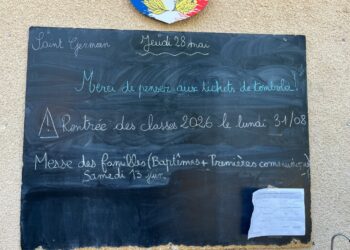 Saint Germain
Jeudi 28 mai
Merci de penser aux tickets de tombola!
Rentrée des classes 2026 le lundi 31/08
Messe des familles (Baptêmes + Premières communions)
Samedi 13 juin